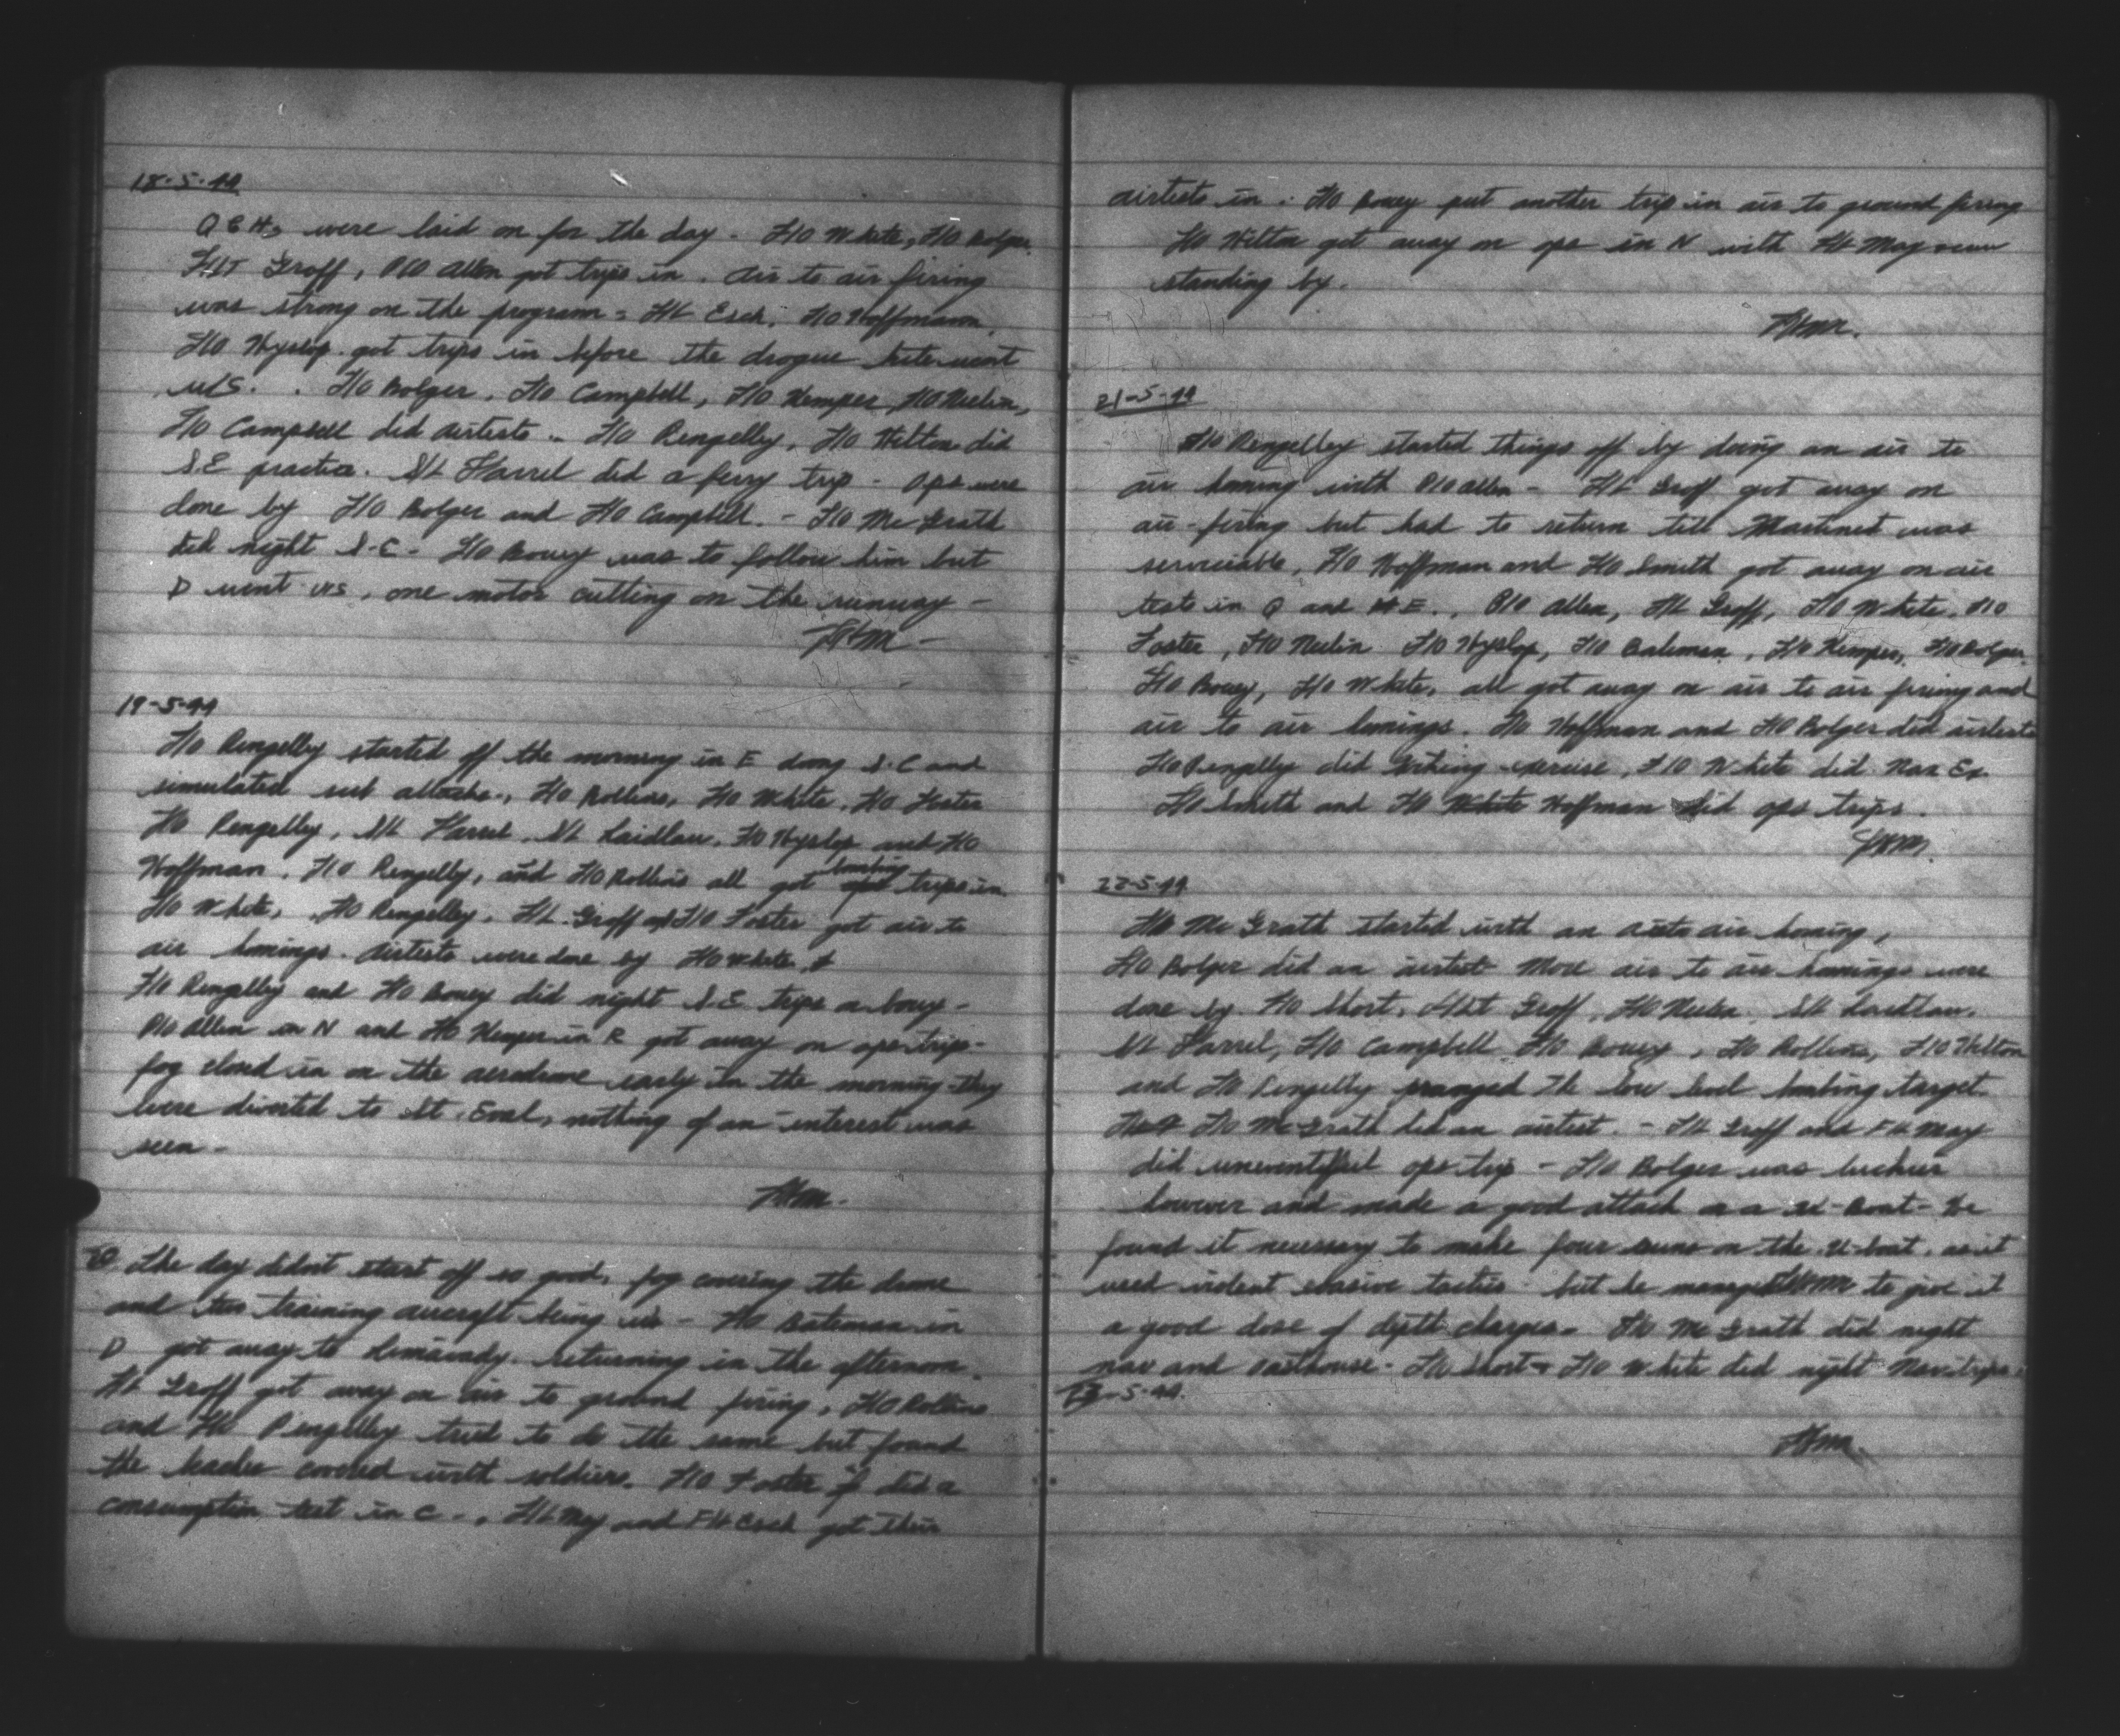 18-5-44
Q G H's were laid on for the day - F/O White, F/O Bolger,
F/LT Groff, P/O Allen got trips in. Air to air firing
was strong on the program - F/L Esch, F/O Hoffmann,
F/O Hyslop got trips in before the drogue kite went
u/s. . F/O Bolger, F/O Campbell, F/O Kemper, F/O Neelin,
F/O Campbell did airtests .. F/O Pengelley, F/O Hilton did
S.E practice. S/L Farrel did a ferry trip - Ops were
done by F/O Bolger and F/O Campbell. - F/O Mc Grath
did night S-C - F/O Bovey was to follow him but
D went u/s, one motor cutting on the runway -
19-5-44
F/O Pengelly started off the morning in E doing S.C and
simulated sub attacks., F/O Rollins, F/O White, F/O Foster
F/O Pengelly, S/L Farrel, S/L Laidlaw, F/O Hyslop and F/O
Hoffman, F/O Pengelly, and F/O Rollins all got bombing trips in
F/O White, F/O Pengelley, F/L Groff and F/O Foster got air to
air homings. Airtests were done by F/O White &
F/O Pengelly and F/O Bovey did night S.E. trips
P/O Allen in N and F/O Kemper in R got away on ops trip -
fog closed in on the aerodrome early in the morning - they
were diverted to St. Eval, nothing of an interest was
seen -
20 The day didn't start off so good, fog covering the drome
and two training aircraft being u/s - F/O Bateman in
D got away to Limavady returning in the afternoon.
F/L Groff got away on air to ground firing, F/O Rollins
and F/O Pengelley tried to do the same but found
the beaches covered with soldiers. F/O Foster did a
consumption test in C -, F/L May and F/Lt Esch got their
airtests in. F/O Bovey put another trip in air to ground firing
F/O Hilton got away on ops in N with F/L May
standing by.
21-5-44
F/O Pengelley started things off by doing an air to
air homing with P/O Allen - F/L Groff got away on
air-firing but had to return till Martinet was
serviceable, F/O Hoffman and F/O Smith got away on air
tests in Q and E., P/O Allen, F/L Groff, F/O White, F/O
Foster, F/O Neelin F/O Hyslop, F/O Bateman, F/O Kemper, F/O Bolger,
F/O Bovey, F/O White, all got away on air to air firing and
air to air homings. F/O Hoffman and F/O Bolger did airtests
F/O Pengelly did exercise, F/O White did Nav Ex.
F/O Smith and F/O White Hoffman did ops trips.
22-5-44
F/O Mc Grath started with an air to air homing,
F/O Bolger did an airtest More air to air homings were
done by F/O Short, F/LT Groff, F/O Neelin, S/L Laidlaw.
S/L Farrel, F/O Campbell F/O Bovey, F/O Rollins, F/O Hilton
and F/O Pengelly pranged the low level bombing target.
F/O Mc Grath did an airtest. - F/L Groff and F/Lt May
did uneventful ops trip - F/O Bolger was luckier
however and made a good attack on a U-Boat - He
found it necessary to make four runs on the U-boat, as it
used violent evasive tactics - but he managed to give it
a good dose of depth charges. F/O Mc Grath did night
nav and oasthouse - F/O Short & F/O White did night Nav trips.
23-5-44.